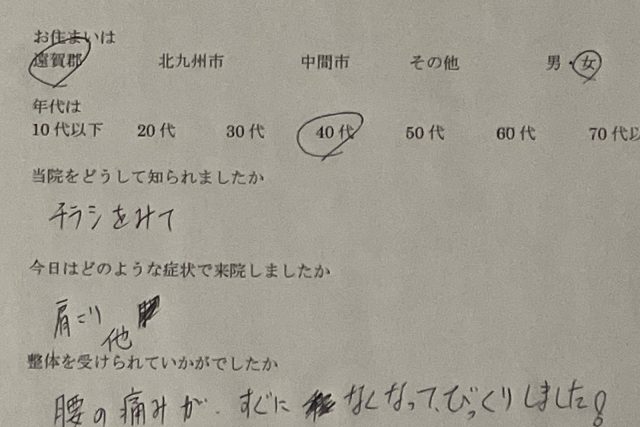 お住まいは
遠賀郡 北九州市 中間市 その他 男・女
年代は
10代以下 20代 30代 40代 50代 60代 70代以
当院をどうして知られましたか
チラシをみて
今日はどのような症状で来院しましたか
肩こり
他
整体を受けられていかがでしたか
腰の痛みが、すぐになくなって、びっくりしました!